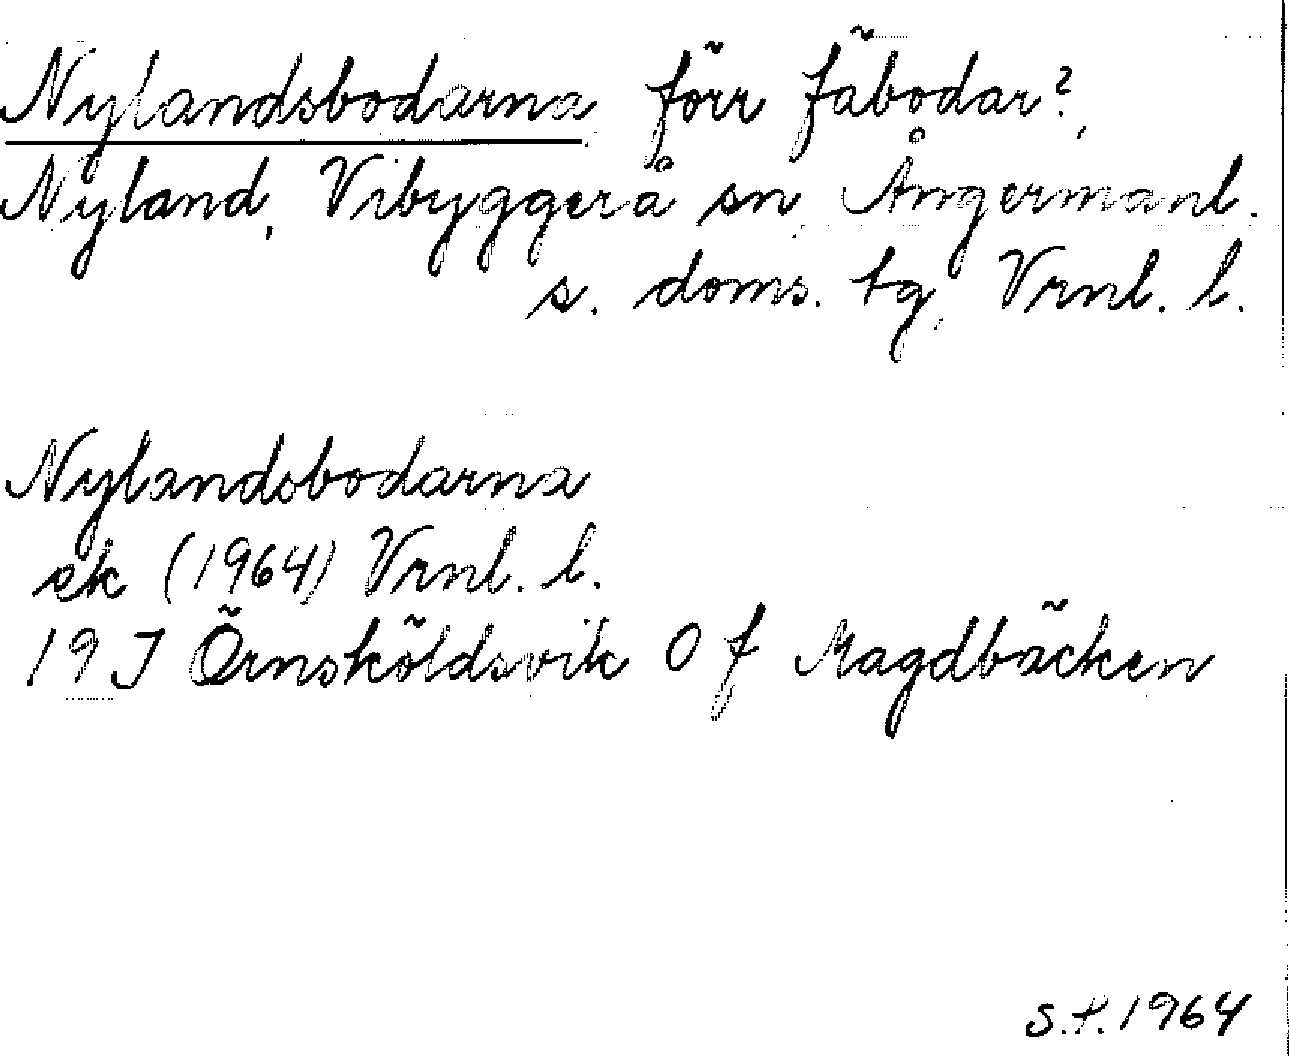 Nylandsbodarna förr fäbodar?,
Nyland, Vibyggerå sn, Ångermanl.
s. doms. tg, Vrnl. l.
Nylandsbodarna
ek (1964) Vrnl. l.
19 J Örnsköldsvik 0 f Magdbäcken
S.t. 1964